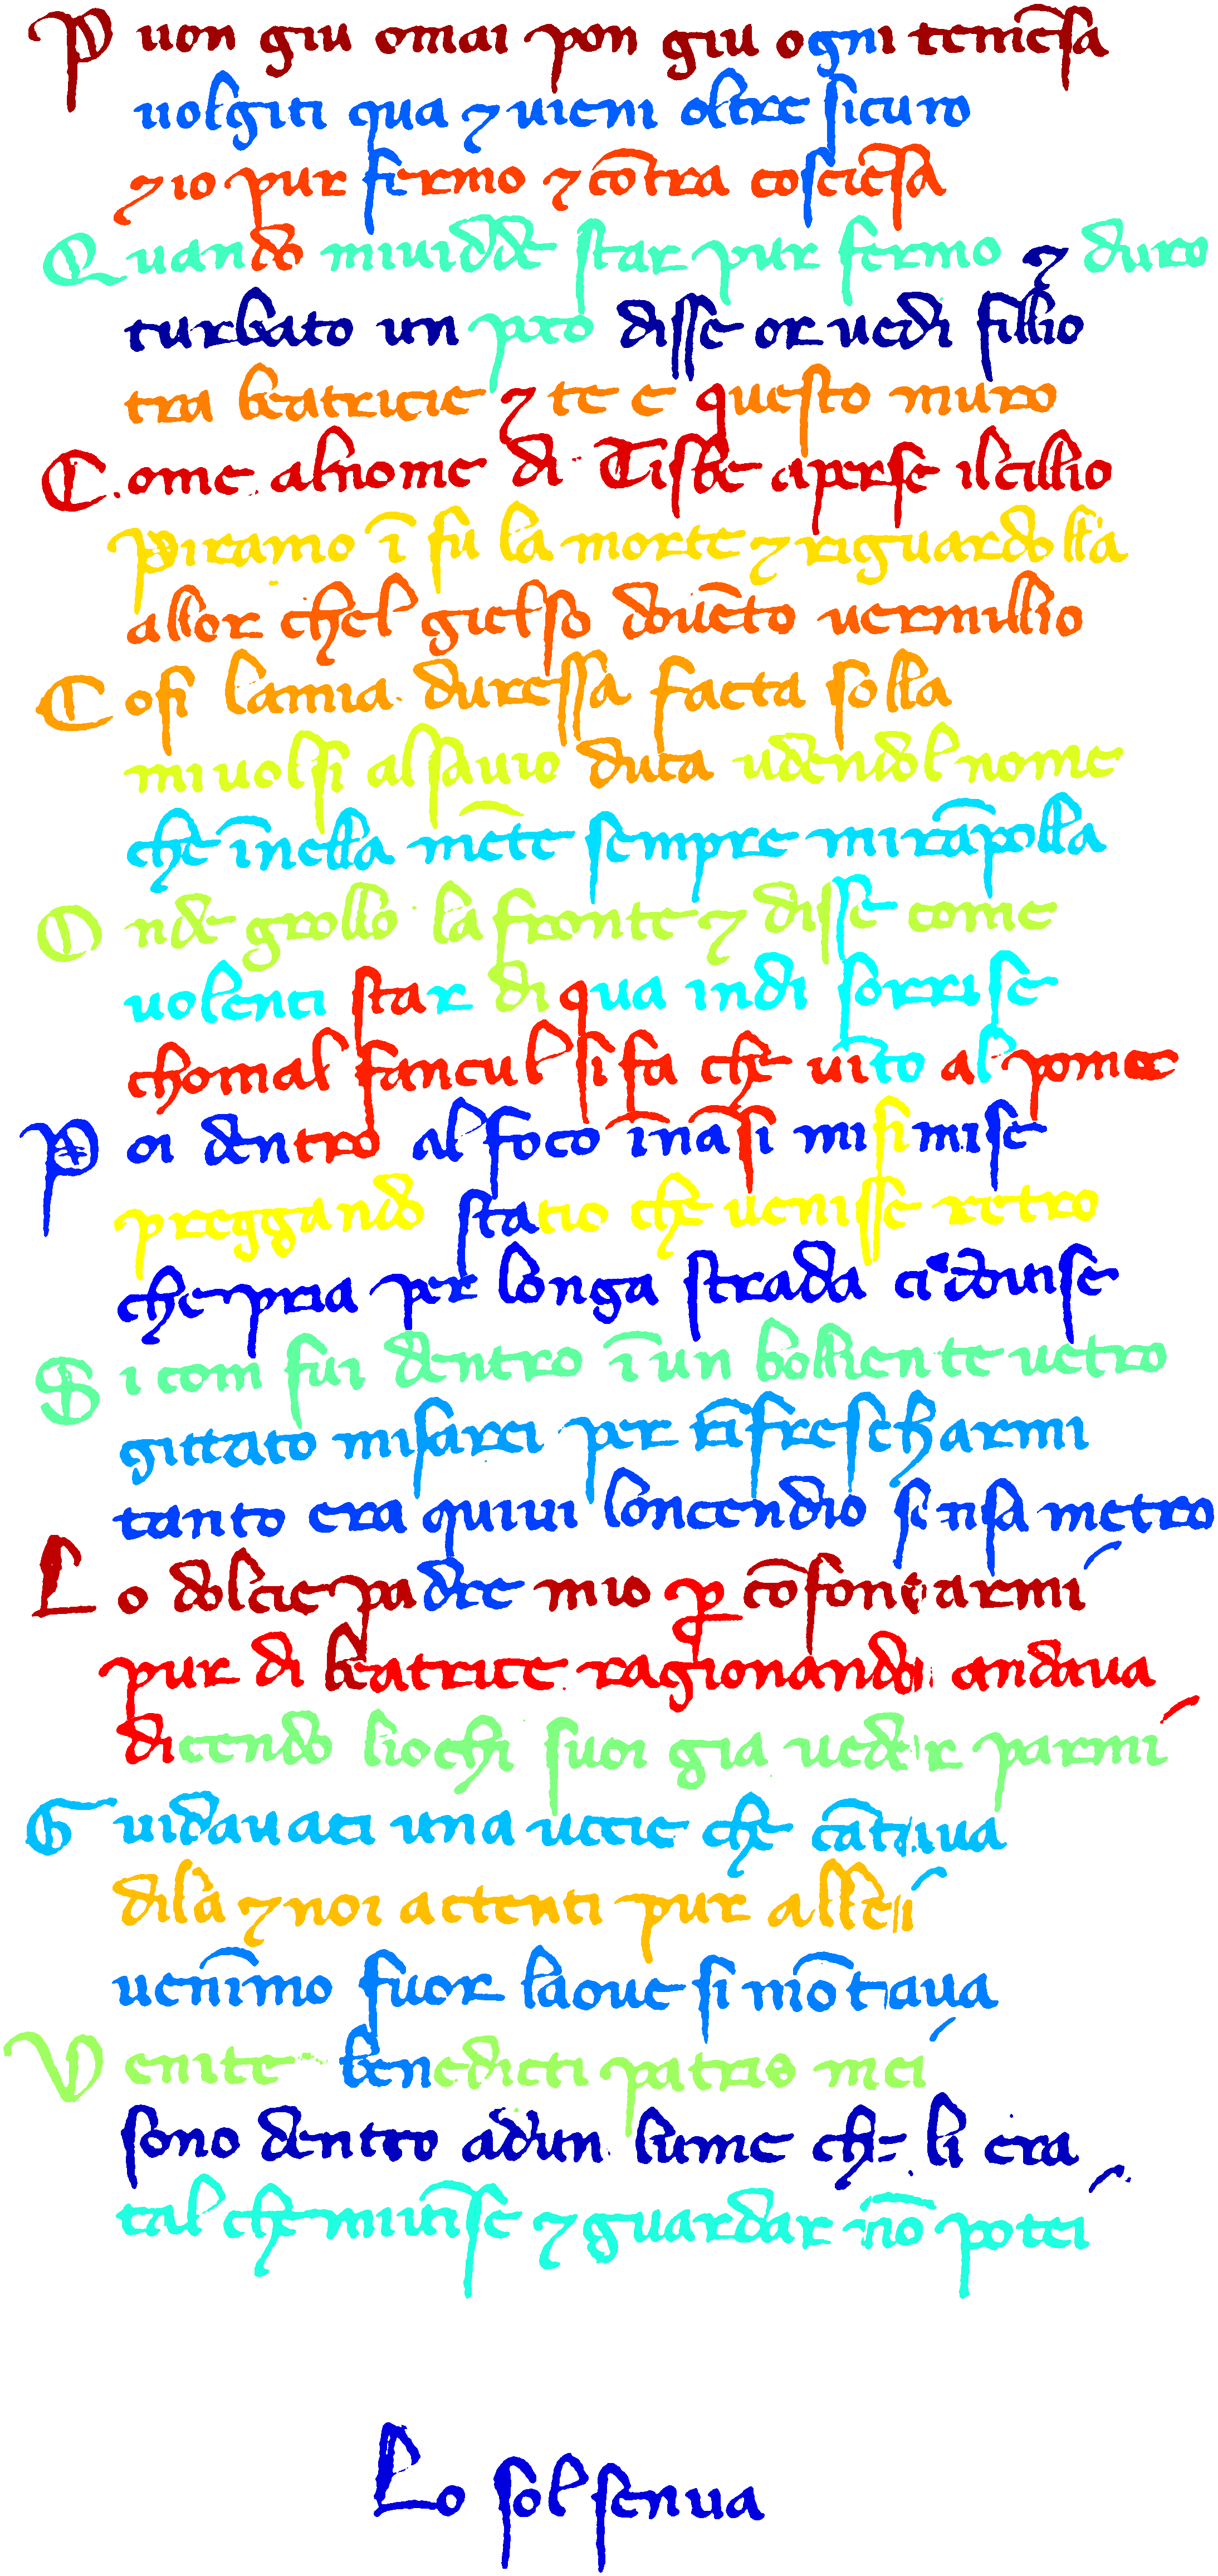 P uon giu omai pon giu ogni temẽſa
uolgiti qua ⁊ uieni oltre ſicuro
⁊ io pur fermo ⁊ cõtra coſciẽſa
Quando miuidde ſtar pur fermo ⁊ duro
turbato un pco diſſe or uedi fillio
tra beatricie ⁊ te e queſto muro
Come alnome di Tiſbe aperſe ilcillio
piramo ĩ fu la morte ⁊ riguardolla
allor chel gielſo douẽto uermillio
C oſi lamia dureſſa facta ſolla
miuolſi alſauio duca udendol nome
che ĩnella mẽte ſempre mirãpolla
O nde grollo la fronte ⁊ diſſe come
uolenti ſtar di qua indi ſorriſe
chomal fancul ſi fa che uĩto al pome
P oi dentro alfoco ĩnãſi miſimiſe
preggando ſtatio che ueniſſe retro
che pria per longa ſtrada ci diuiſe
S i com fui dentro ĩ un bolliente uetro
gittato miſarei per rĩfreſcharmi
tanto era quiui loncendio ſenſa metro
Lo dolcie padre mio ꝑ cõfortarmi
pur di beatrice ragionando andaua
dicendo liochi ſuoi gia ueder parmi
Guidauaci una uccie che cãtaua
dila ⁊ noi actenti pur allei
uenĩmo fuor laoue ſi mõtaua
V enite benedicti patris mei
ſono dentro adun lume che li era
tal che miuĩſe ⁊ guardar nõ potei
Lo ſol ſenua